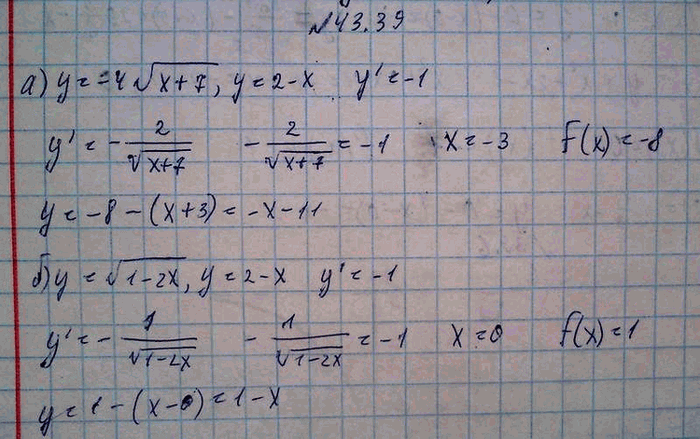 №43.39
а) y = -4√(x+7), y = 2-x   y' = -1
y' = - 2/√(x+7)   - 2/√(x+7) = -1   x = -3   f(x) = -8
y = -8-(x+3) = -x-11
б) y = √(1-2x), y = 2-x   y' = -1
y' = - 1/√(1-2x)   - 1/√(1-2x) = -1   x = 0   f(x) = 1
y = 1-(x-0) = 1-x